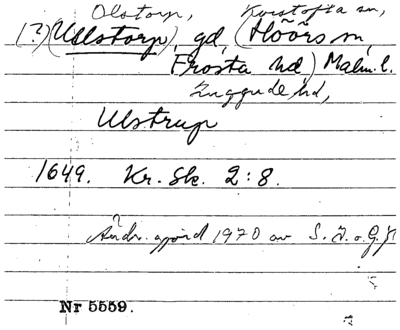 Olstorp, Kvistofta sn,
(?) (Ullstorp), gd, (Höörs sn,
Frosta hd) Malm. l.
Luggude hd,
Ulstrup
1649. Kr. Sk. 2:8.
?
Ändr. gjord 1970 av S. J. o. G. H
Nr 5559.